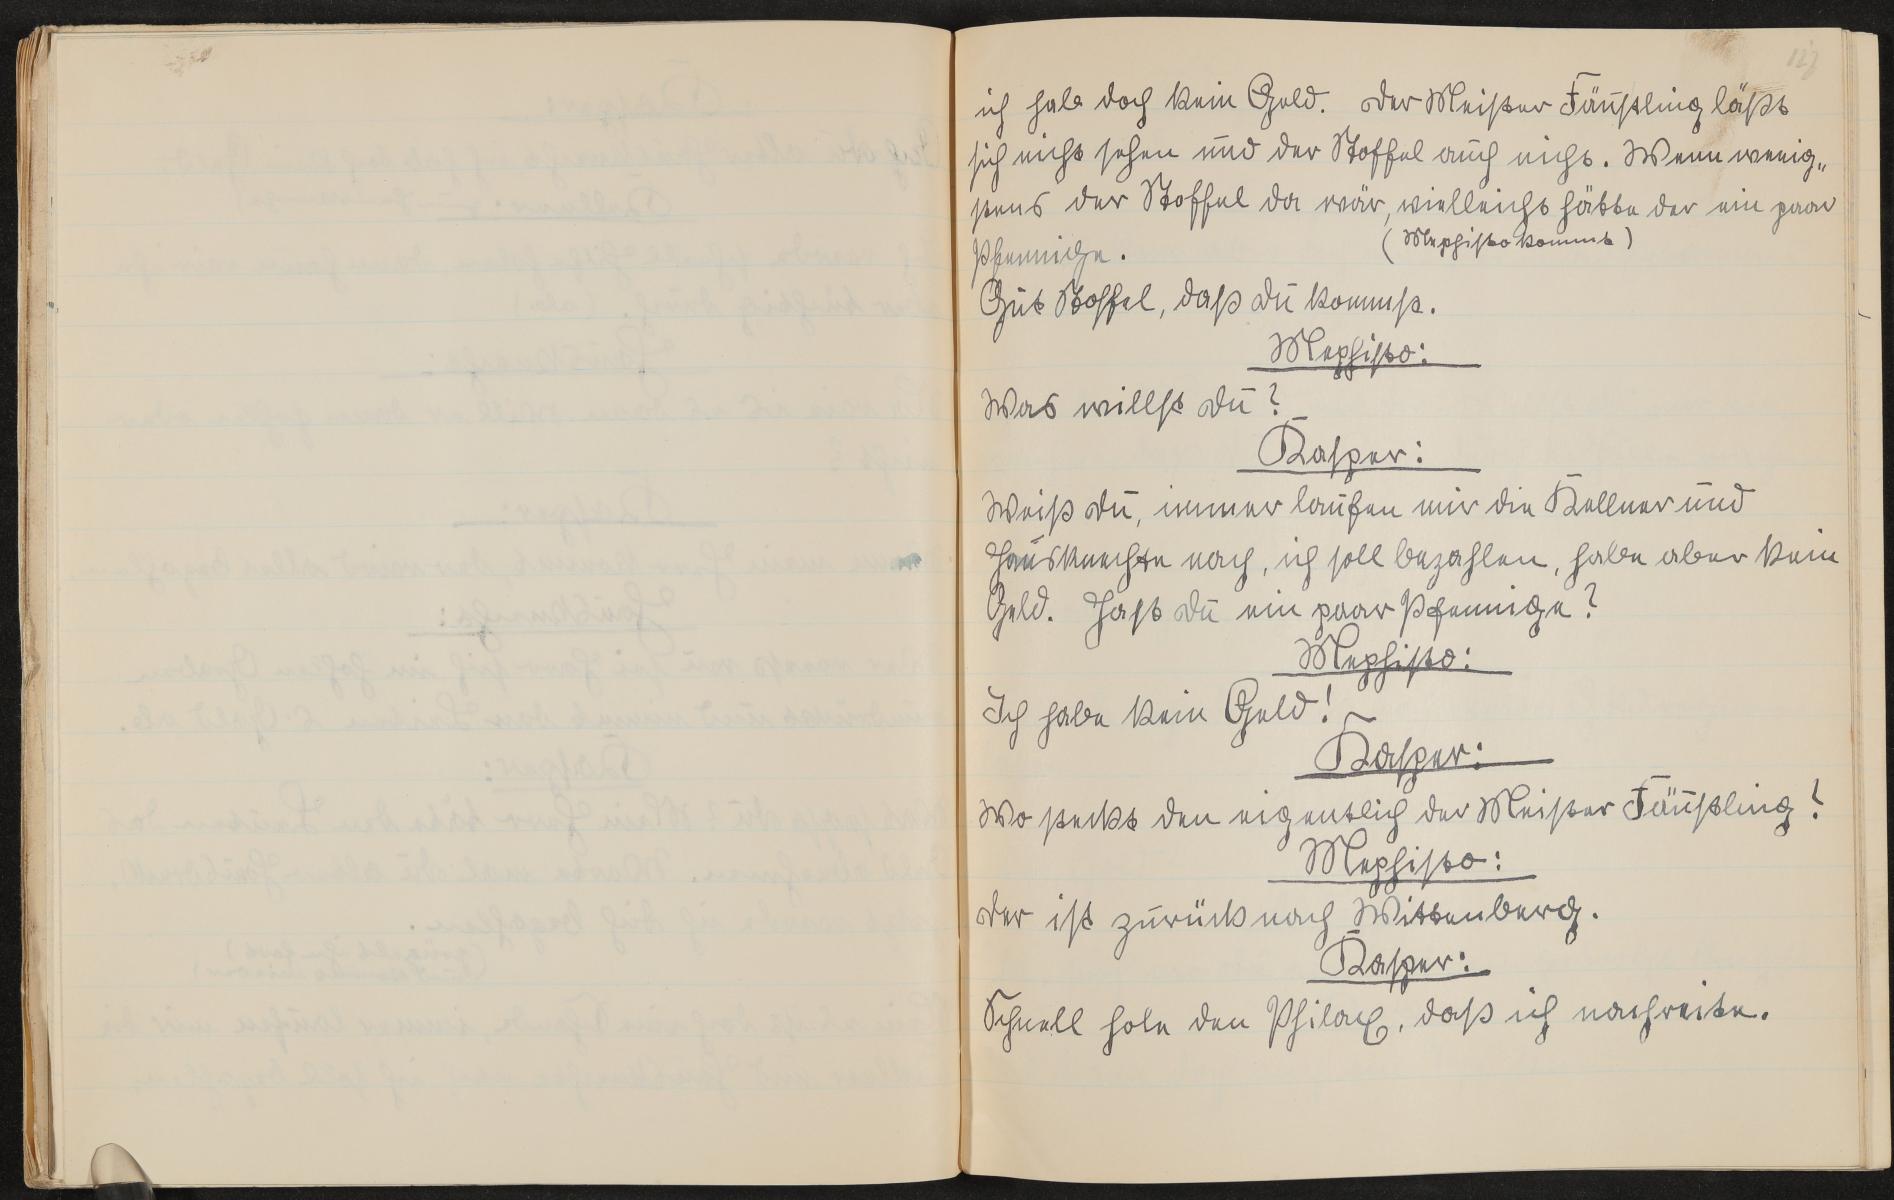 ich habe doch kein Geld. Der Meister Fäustling läßt
sich nicht sehen und der Stoffel auch nicht. Wenn wenig„
stens der Stoffel da wär, vielleicht hätte der ein paar
Pfennige.
(Mephisto kommt)
Gut Stoffel, daß du kommst.
Mephisto:
Was willst du?
Kasper:
Weiß du, immer laufen mir die Kellner und
Hausknechte nach, ich soll bezahlen, habe aber kein
Geld. Hast du ein paar Pfennige?
Mephisto:
Ich habe kein Geld!
Kasper:
Wo steckt den eigentlich der Meister Fäustling?
Mephisto:
Der ist zurück nach Wittenberg.
Kasper:
Schnell hole den Philax, daß ich nachreite.